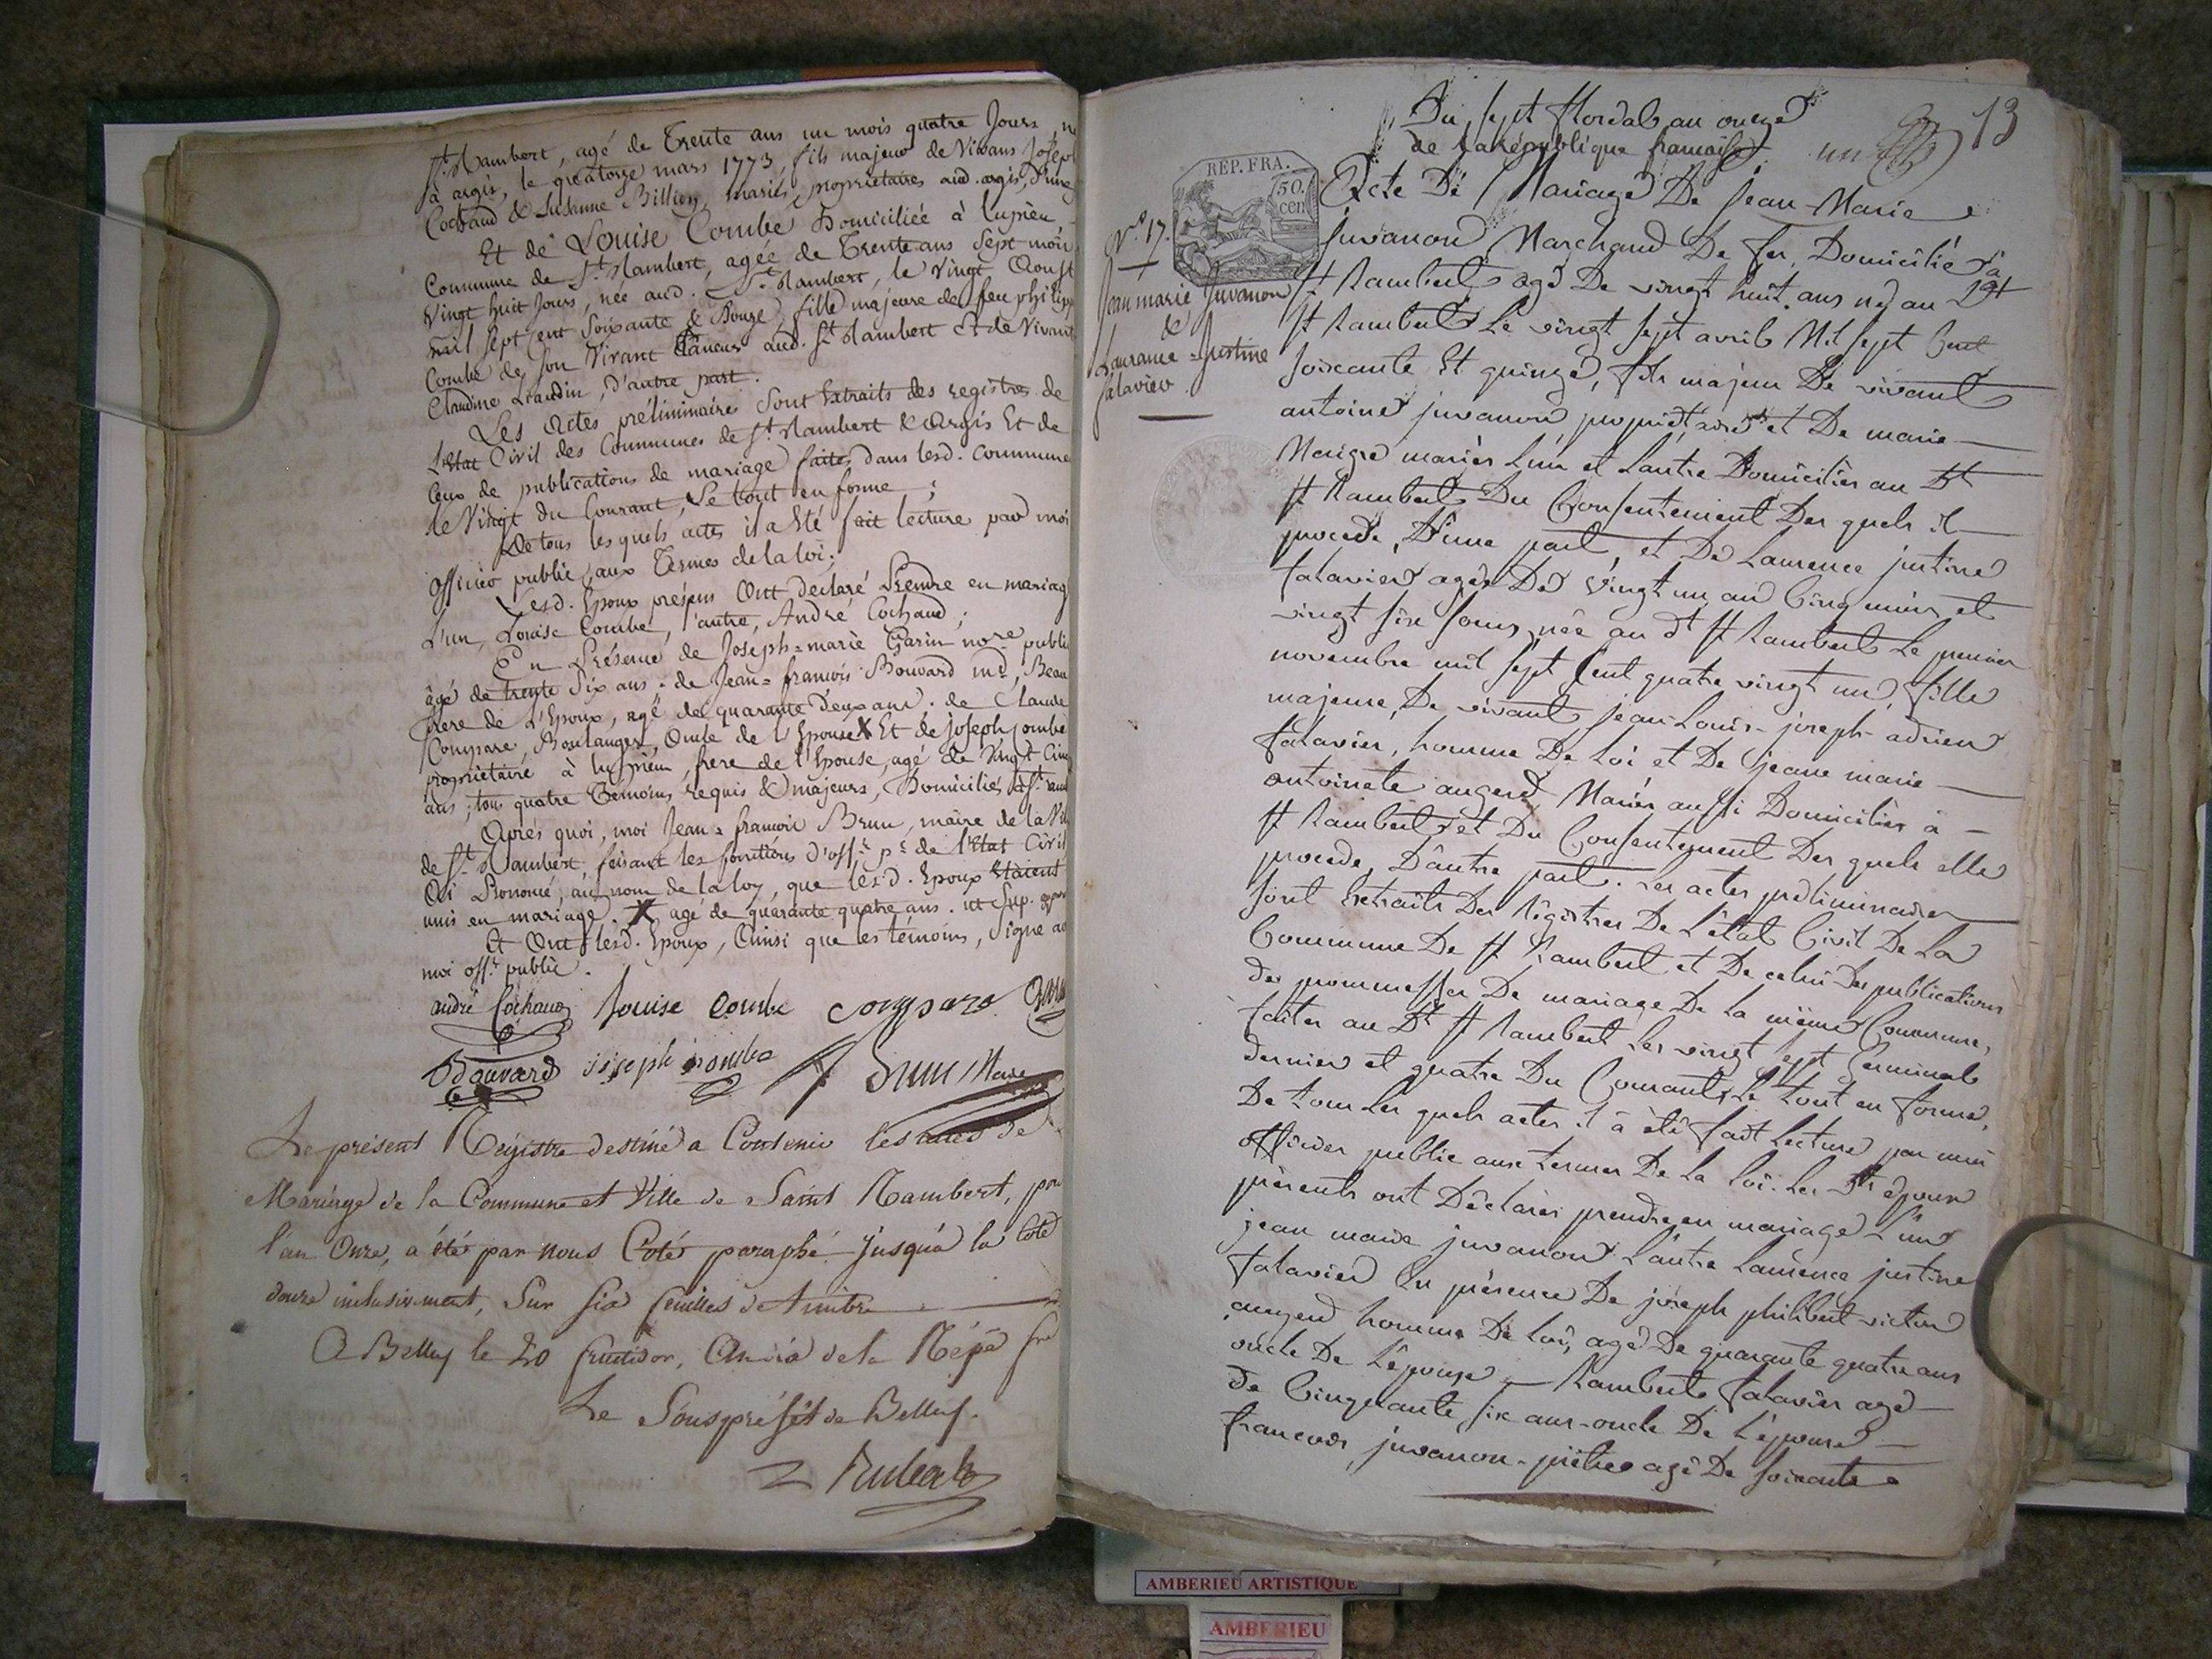 St. Rambert, agé de Trente ans un mois quatre Jours, né
à argis, le quatorze mars 1773, fils majeur de Vivans Joseph
Cochaud & Susanne Billion, mariés, propriétaires aud. argis, d'une
Et de Louise Combe Domiciliée à lupieu
Commune de St. Rambert, agée de Trente ans Sept mois
Vingt huit Jours, née aud. St. Rambert, le Vingt Aoust
mil Sept Cent Soixante & Douze, fille majeure de feu philippe
Combe de son Vivant aud. St Rambert et de Vivante
Claudine Liaudin, d'autre part.
Les Actes préliminaires Sont Extraits des registres de
L'Etat Civil des Communes de St. Rambert & Argis Et de
Ceux de publications de mariage faites dans lesd. Communes
le Vingt du Courant, Le tout en forme;
De tous les quels actes il a Eté fait lecture par moi
officier public, aux Termes de la loi;
Lesd. Epoux présens Ont declaré Prendre en mariage
L'un, Louise Combe, l'autre, André Cochaud;
En Présence de Joseph=marie Garin nore public
âgé de trente Six ans; de Jean=francois Bouvard md, Beau
frere de L'Epoux, agé de quarante deux ans; de Claude
Compare, Boulanger, Oncle de l'Epouse X Et de joseph jombe
propriétaire à lupieu, frere de l'Epouse, agé de Vingt Cinq
ans; tous quatre Temoins requis & majeurs, Domiciliés à St. ramb
Après quoi, moi Jean=francois Brun, maire de la Ville
de St. Rambert, faisant les fonctions d'offr. pc. de l'Etat Civil
Ai Prononcé, au nom de la loy, que lesd. Epoux Etaient
unis en mariage. X agé de quarante quatre ans. ut Sup. appr
Et Ont lesd. Epoux, Ainsi que les temoins, Signé av
moi offr. public.
andré Cochaud Louise Combe Compare Garin
Bouvard joseph jombe Brun Maire
Le présent Régistre destiné a Contenir les actes de
Mariage de la Commune et Ville de Saint Rambert, pour
l'an Onze, a été par nous Coté paraphé jusqu'à la Cote
douze inclusivement, Sur Six feuilles de timbre
A Belley le 20 fructidor, An dix de la Répe fre
Le Souspréfet de Belley.
13
Du Sept floréal an onze
de la république francaise
REP. FRA.
50. cen.
No. 17.
Jean marie Juvanon
&
Laurance=Justine
falavier.
Acte De Mariage De Jean-Marie
Juvanon Marchand De fer, Domicilié à
St Rambert agé De vingt huit ans né au Dt
St Rambert Le vingt Sept avril Mil Sept Cent
Soixante Et quinze, fils majeur De vivant
antoine juvanon propriétaire et De marie
Maigre mariés L'un et L'autre Domiciliés au Dt
St Rambert Du Consentement Des quels il
procede, D'une part, et De Laurence justine
falavier agée De Vingt un ans Cinq mois et
vingt Six Jours née au dt St Rambert Le premier
novembre mil Sept Cent quatre vingt un, fille
majeure, De vivant jean-Louis-joseph-adrien
falavier, homme De Loi et De jeane marie
antoinete augerd, Mariés aussi Domiciliés à
St Rambert et Du Consentement Des quels elle
procede, D'autre part. Les actes préliminaires
Sont Extraits Des Régistres De L'état Civil De La
Commune De St Rambert et De celui Des publications
des prommesses De mariage De La même Commune,
faites au Dt St Rambert Les vingt Sept Germinal
dernier et quatre Du Courant, Le tout en forme,
De tous Les quels actes il à été fait Lecture par moi
officier public aux termes De La Loi. Les Dts époux
présents ont Déclarés prendre en mariage L'un
jean marie juvanon L'autre Laurence justine
falavier En présence De joseph philibert-victor
augerd homme De Loi, agé De quarante quatre ans
oncle De L'épouse - Rambert falavier agé
de Cinquante six ans-oncle De L'épouse -
francois juvanon-prêtre agé De Soixante
AMBERIEU ARTISTIQUE
AMBERIEU